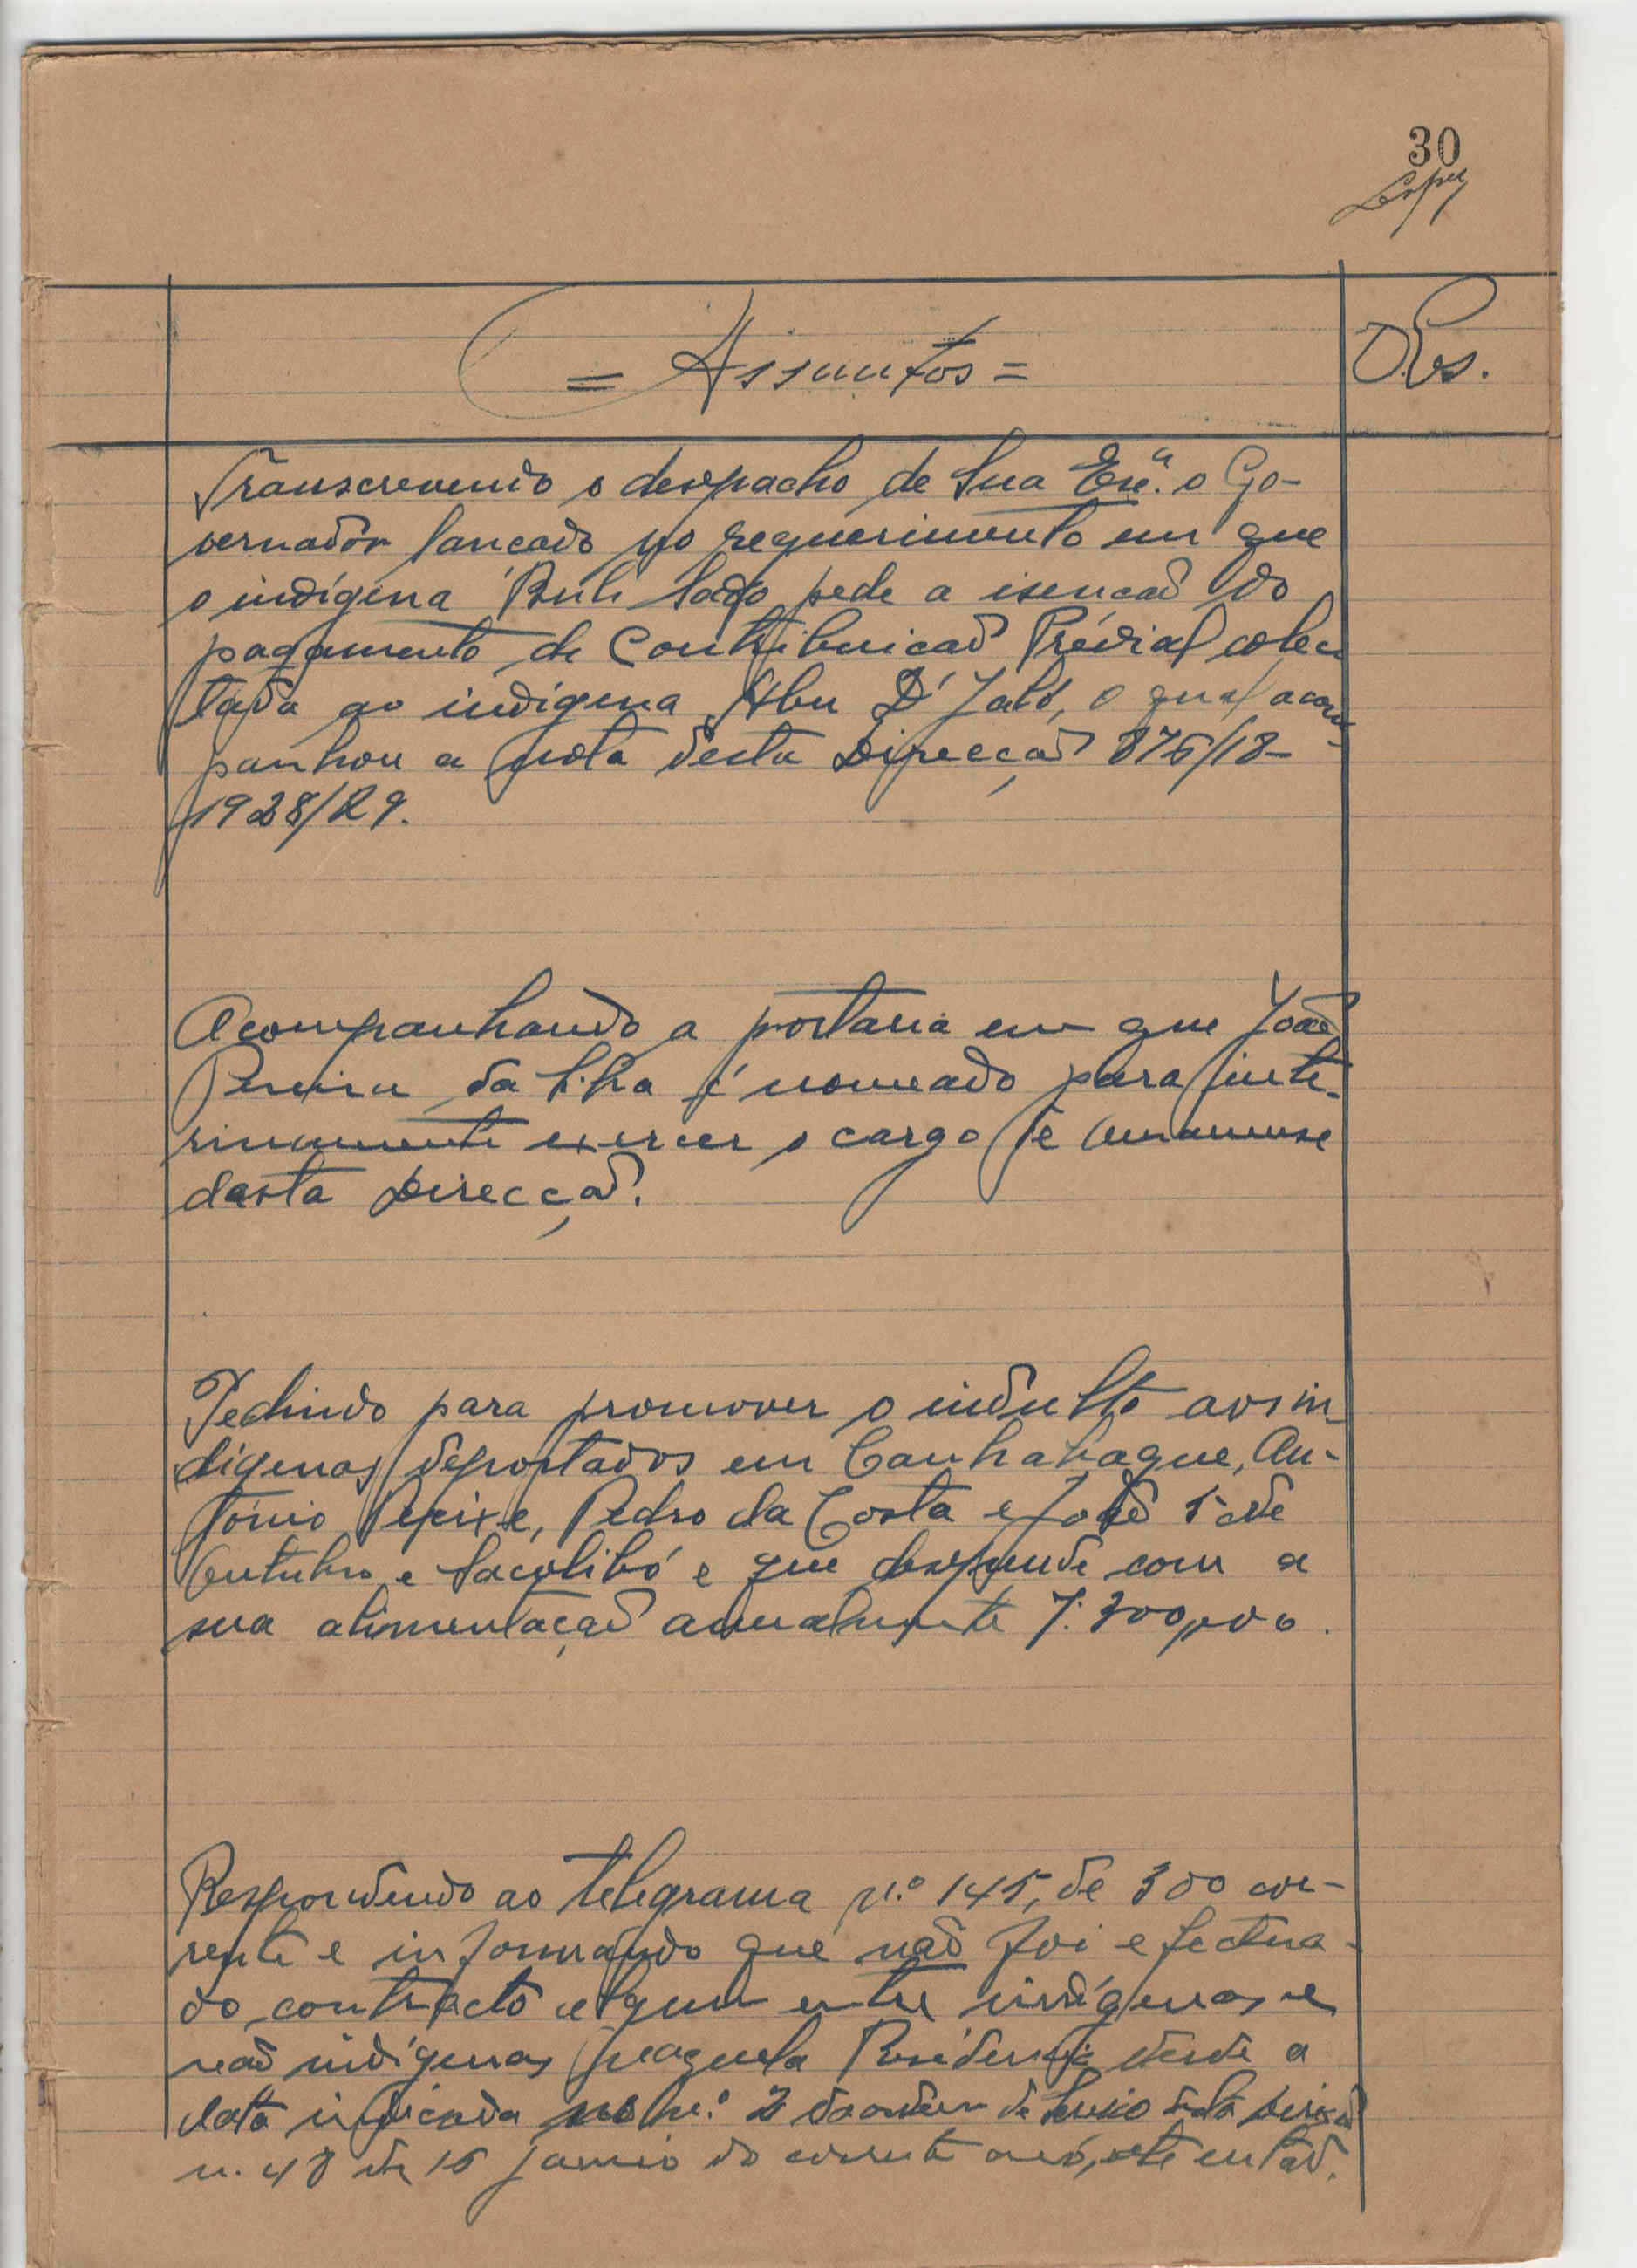 30
= Assuntos =
Obs.
Transcrevendo o despacho de Sua Exª. o Go-
vernador lançado no requerimento em que
o indígina pede a isencaõ do
pagamento de Contribuicaõ Prédial colec
tada ao indigena Abu D'Jaló, o qual acom-
panhou a nota desta Direcçaõ 876/18-
1928/29.
Acompanhando a portaria em que Joaõ
Pereira da Silva é nomeado para inte-
rinamente exercer o cargo de amanuense
desta Direcçaõ.
Pedindo para promover o indulto aos in-
digenas deportados em Canhabaque, An-
tónio Peixe, Pedro da Costa e João 5 de
Outubro e e que despende com a
sua alimentaçaõ anualmente 7.300,00.
Respondendo ao telegrama n.º 145, de 3 do cor-
rente e informando que naõ foi efectua-
do contracto algum entre indígenas e
naõ indígenas naquela Residencia desde a
data indicada no n.º 2 da ordem de serviço desta Direcçaõ
n. 48 de 15 Janeiro do corrente ano, até entaõ.